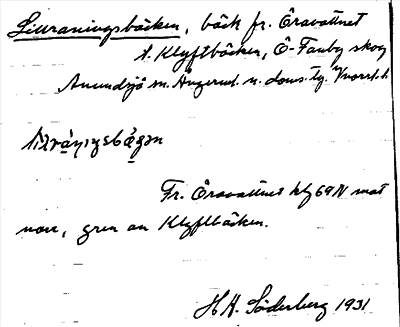 Lillraningsbäcken, bäck fr. Öravattnet
t. Klyftbäcken, Ö-Tanby skog
Anundsjö sn. Ångerml. n. doms. lg. Vnorrl. l.
Fr. Öravattnet kly 69 N mot
norr, gren av Klyftbäcken.
H. H. Söderberg 1931